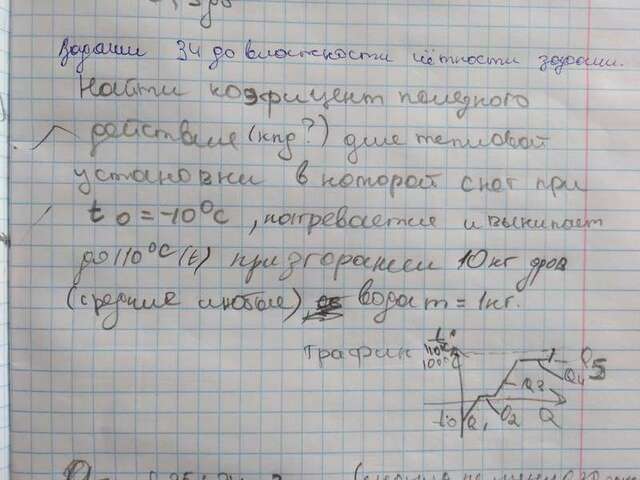 Задачи 34 до влажности чётности задачи.
Найти коэфицент полезного
действие (кпд?) для тепловой
установки в которой снег при
t0 = -10°C, нагревается и выкипает
до 110°C (t) при згорании 10кг дров
(средние любые) вода m = 1кг.
График t°
110°C
100°C
Q5
Q4
Q3
t0 Q1 Q2 Q